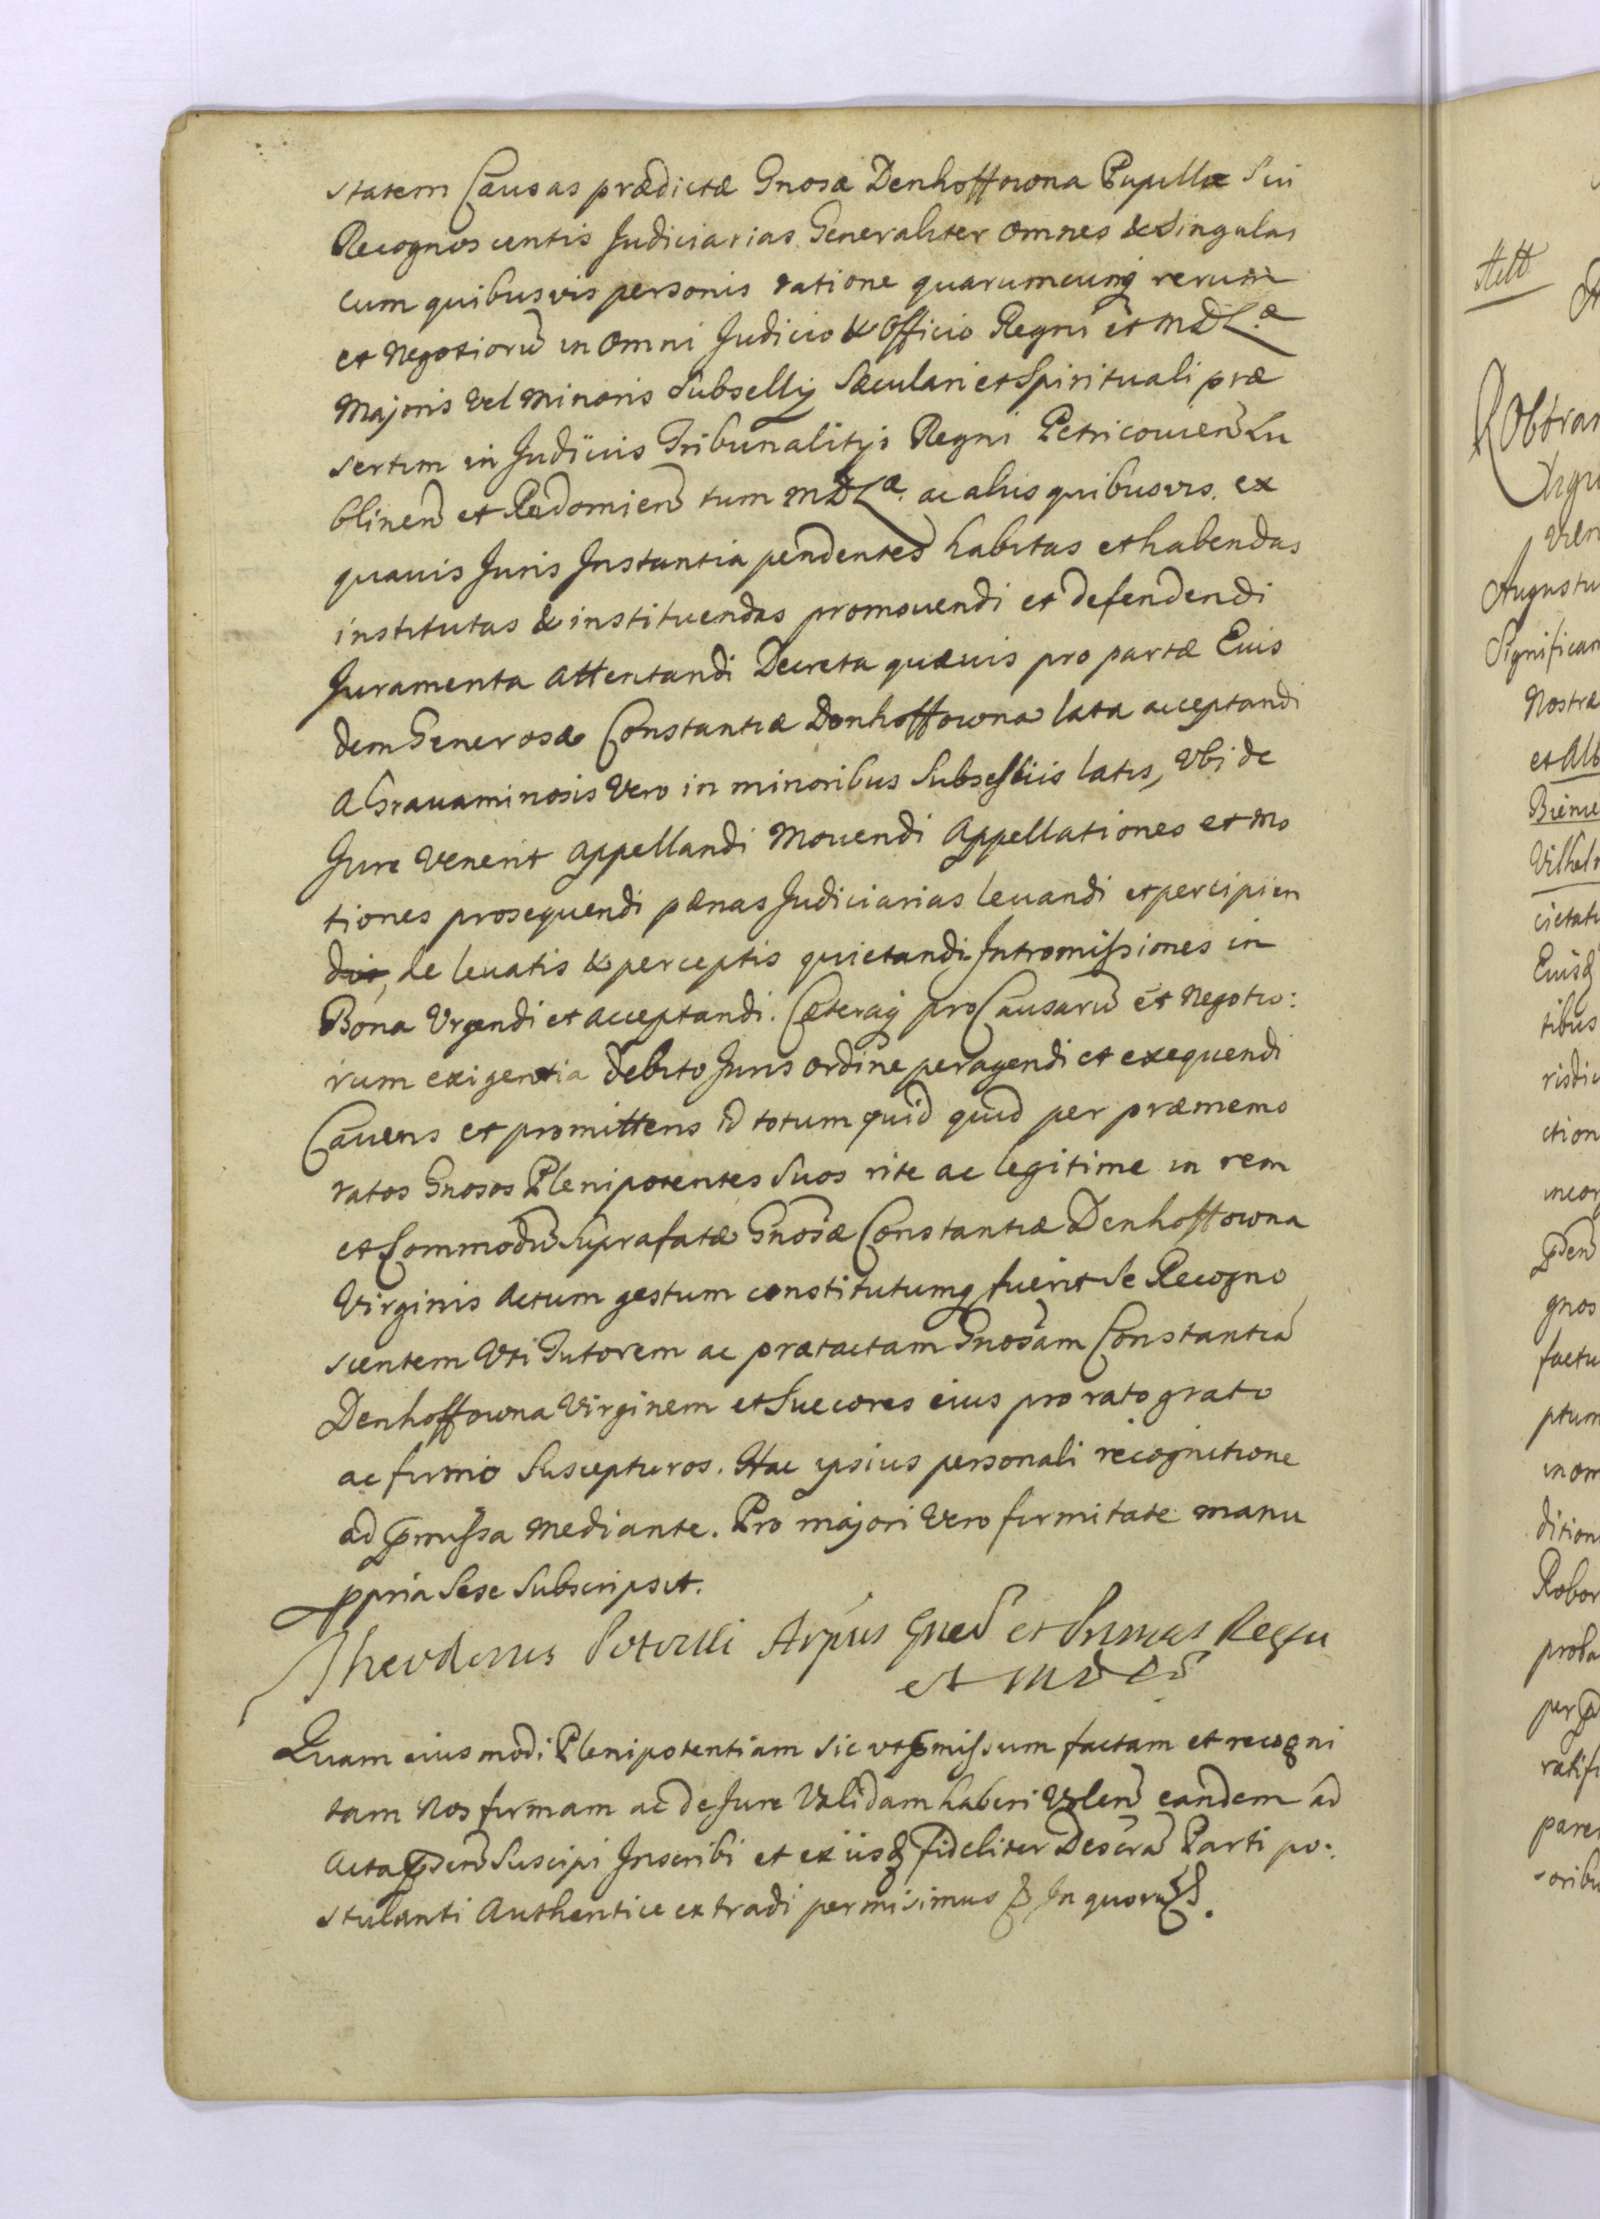 statem Causas prædictæ Gnosæ Denhoffowna Pupillæ Sui
Recognoscentis Judiciarias Generaliter omnes & Singulas
cum quibusvis personis ratione quarumcunq rerum
et Negotioru in omni Judicio & Officio Regni et MDLæ
Majoris vel Minoris Subsellÿ Sæculari et Spirituali præ
sertim in Judicÿs Tribunalitÿs Regni Petricouien Lu
blinen et Radomien tum MDLæ ac alÿs quibusvis ex
quauis Juris Instantia pendentes habitas et habendas
institutas & instituendas promouendi et defendendi
Juramenta attentandi Decreta quæuis pro partæ Eius
dem Generosæ Constantiæ Denhoffowna lata acceptandi
a Grauaminosis Vero in minoribus Subsellÿs latis, Vbi de
Jure Venerit appellandi Mouendi Appellationes et Mo
tiones prosequendi pænas Judiciarias leuandi et percipien
di, de leuatis & perceptis quietandi Intromissiones in
Bona Urgendi et acceptandi. Cæteraq pro Causaru et Negotio:
rum exigentia debito Juris ordine peragendi et exequendi
Cauens et promittens id totum quid quid per præmemo
ratos Gnosos Plenipotentes Suos rite ac legitime in rem
et Commodu Suprafatæ Gnosæ Constantiæ Denhoffowna
Virginis Actum gestum constitutumq fuerit Se Recogno
scentem Vti Tutorem ac prætactam Gnosam Constantia
Denhoffowna Virginem et Succores eius pro rato grato
ac firmo Suscepturos. Hac ipsius personali recognitione
ad pmissa Mediante. Pro majori Vero firmitate manu
ppria Sese Subscripsit.
Theodorus Potocki Arpüs Gnen et Primas Regni
et MDL
Quam eiusmodi Plenipotentiam Sic vt pmissum factam et recogni
tam Nos firmam ac de Jure Validam haberi Volen eandem ad
Acta psen Suscipi Inscribi et ex ijsd fideliter Descra Parti po:
stulanti Authentice extradi permisimus & In quoru
Actt
Augustu
Nostræ
et Alb